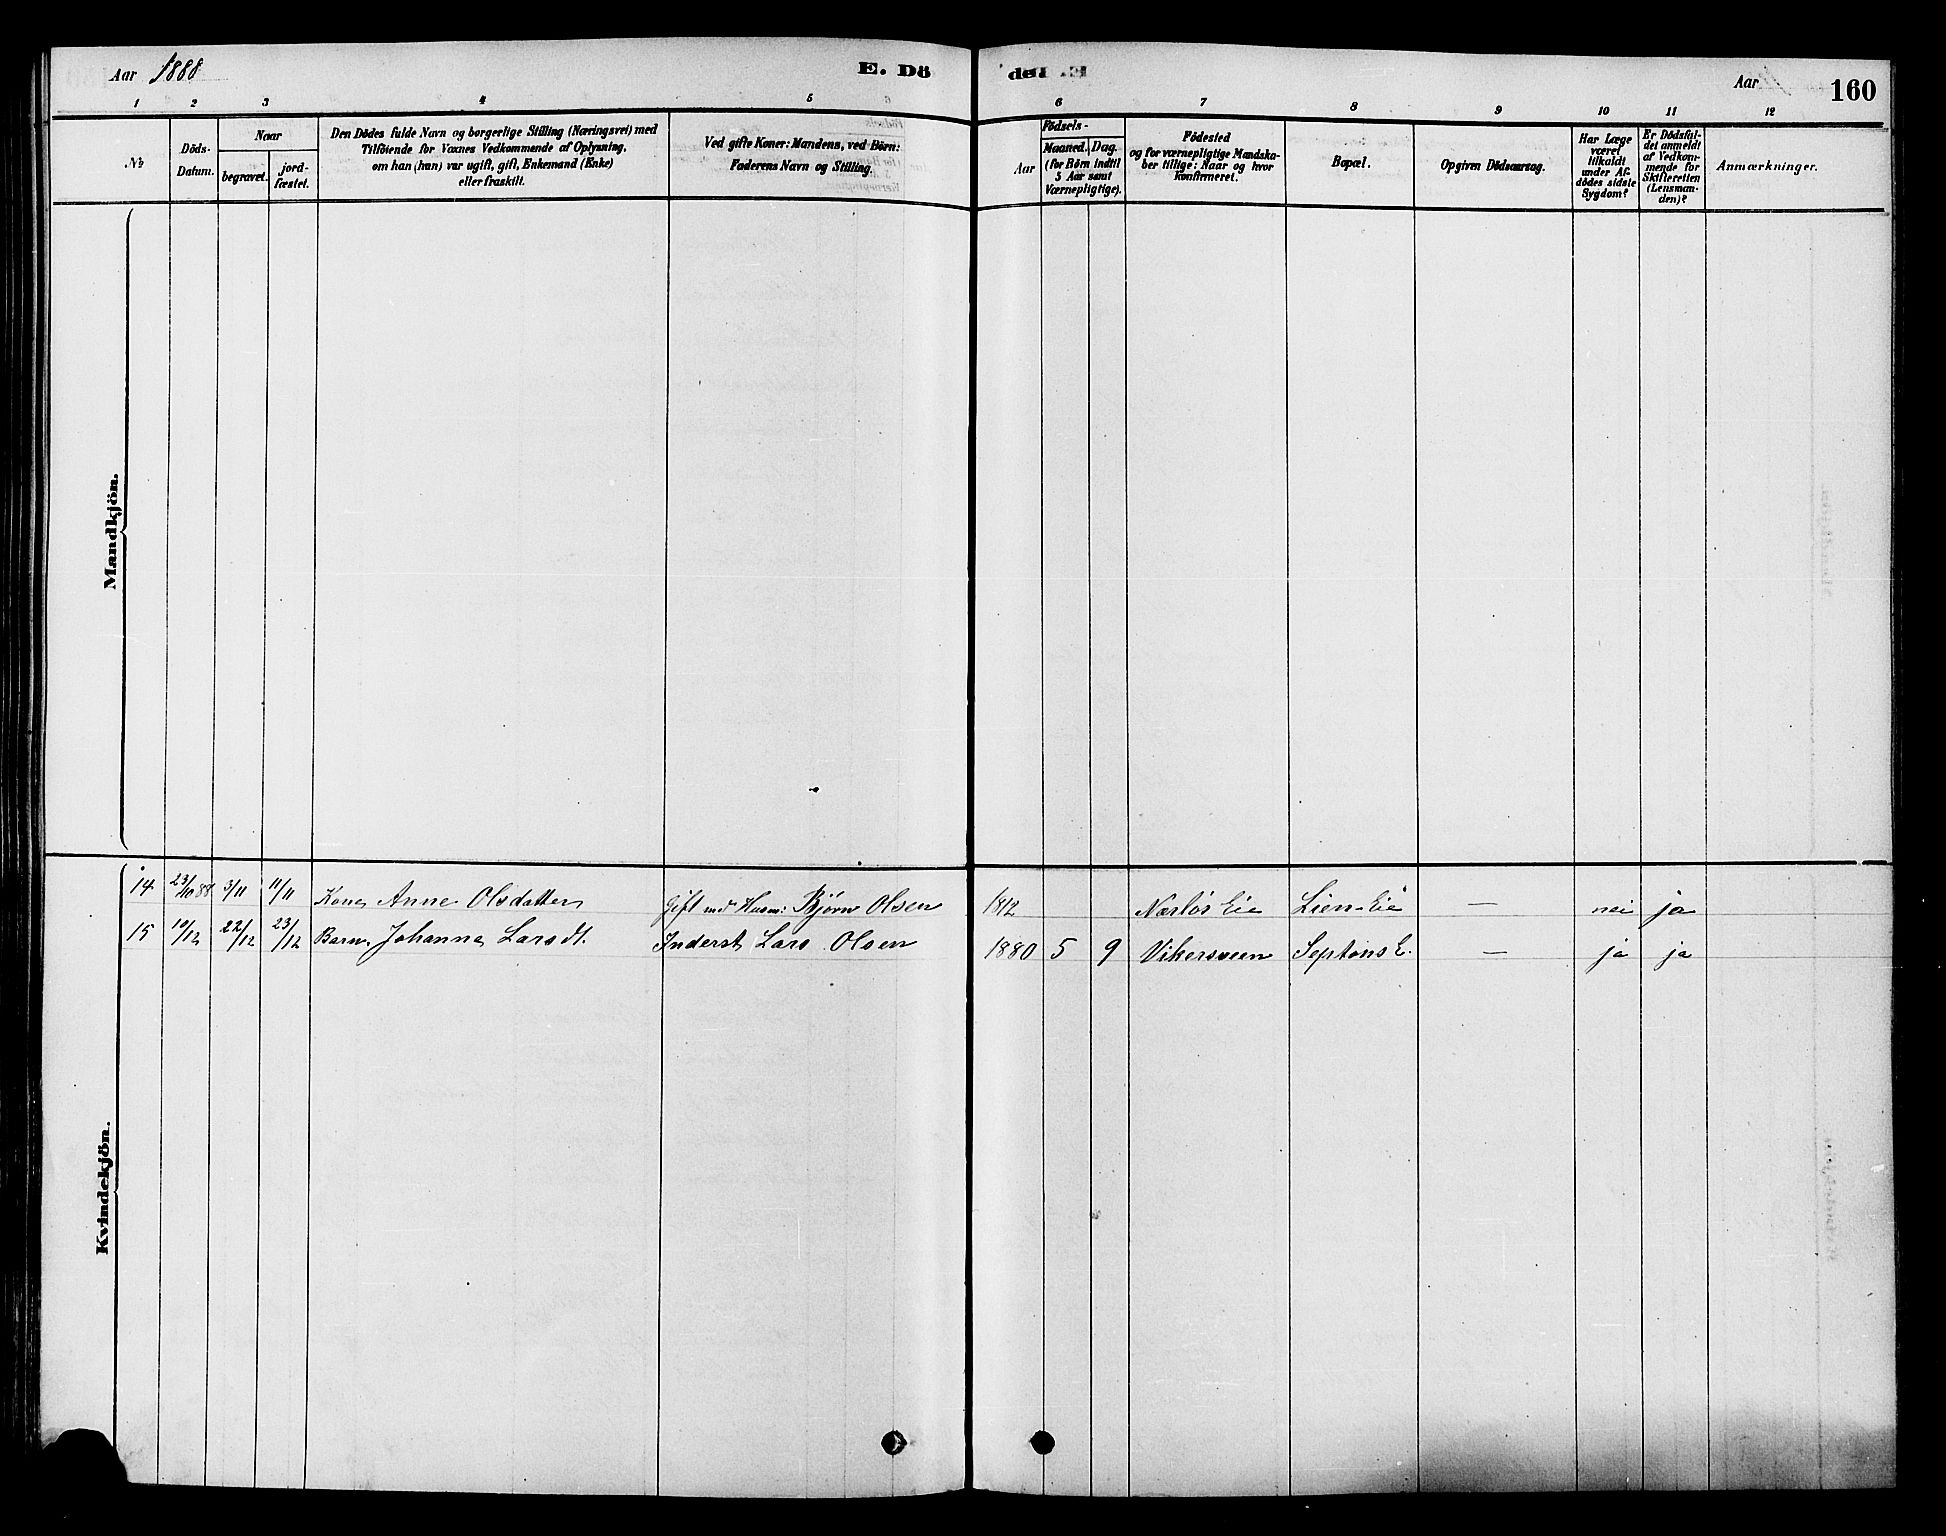 Aar 1888
E. Dö
Aar
160
1 2 3 4 5
6 7 8 9 10 11 12
No
Döds-
Datum.
Naar
begravet.
jord-
fæstet.
Den Dödes fulde Navn og borgerlige Stilling (Næringsvei) med
Tilföiende for Voxnes Vedkommende af Oplysning,
om han (hun) var ugift, gift, Enkemand (Enke)
eller fraskilt.
Ved gifte Koner: Mandens, ved Börn:
Faderens Navn og Stilling.
Födsels-
Aar
Maaned. Dag.
(for Börn indtil
5 Aar samt
Værnepligtige).
Födested
og for værnepligtige Mandska-
ber tillige: Naar og hvor
konfirmeret.
Bopæl.
Opgiven Dödsaarsag.
Har Læge
været
tilkaldt
under Af-
dödes sidste
Sygdom?
Er Dödsfal-
det anmeldt
af Vedkom-
mende for
Skifteretten
(Lensman-
den)?
Anmærkninger.
Mandkjön.
Kvindekjön.
14 23/10 88 3/11 11/11 Kone Anne Olsdatter gift md Husm: Bjørn Olsen 1812 Eie Lien-Eie — nei ja
15 10/12 22/12 23/12 Barn Johanna Larsdt. Inderst Lars Olsen 1880 5 9 Vikersveen E. — ja ja